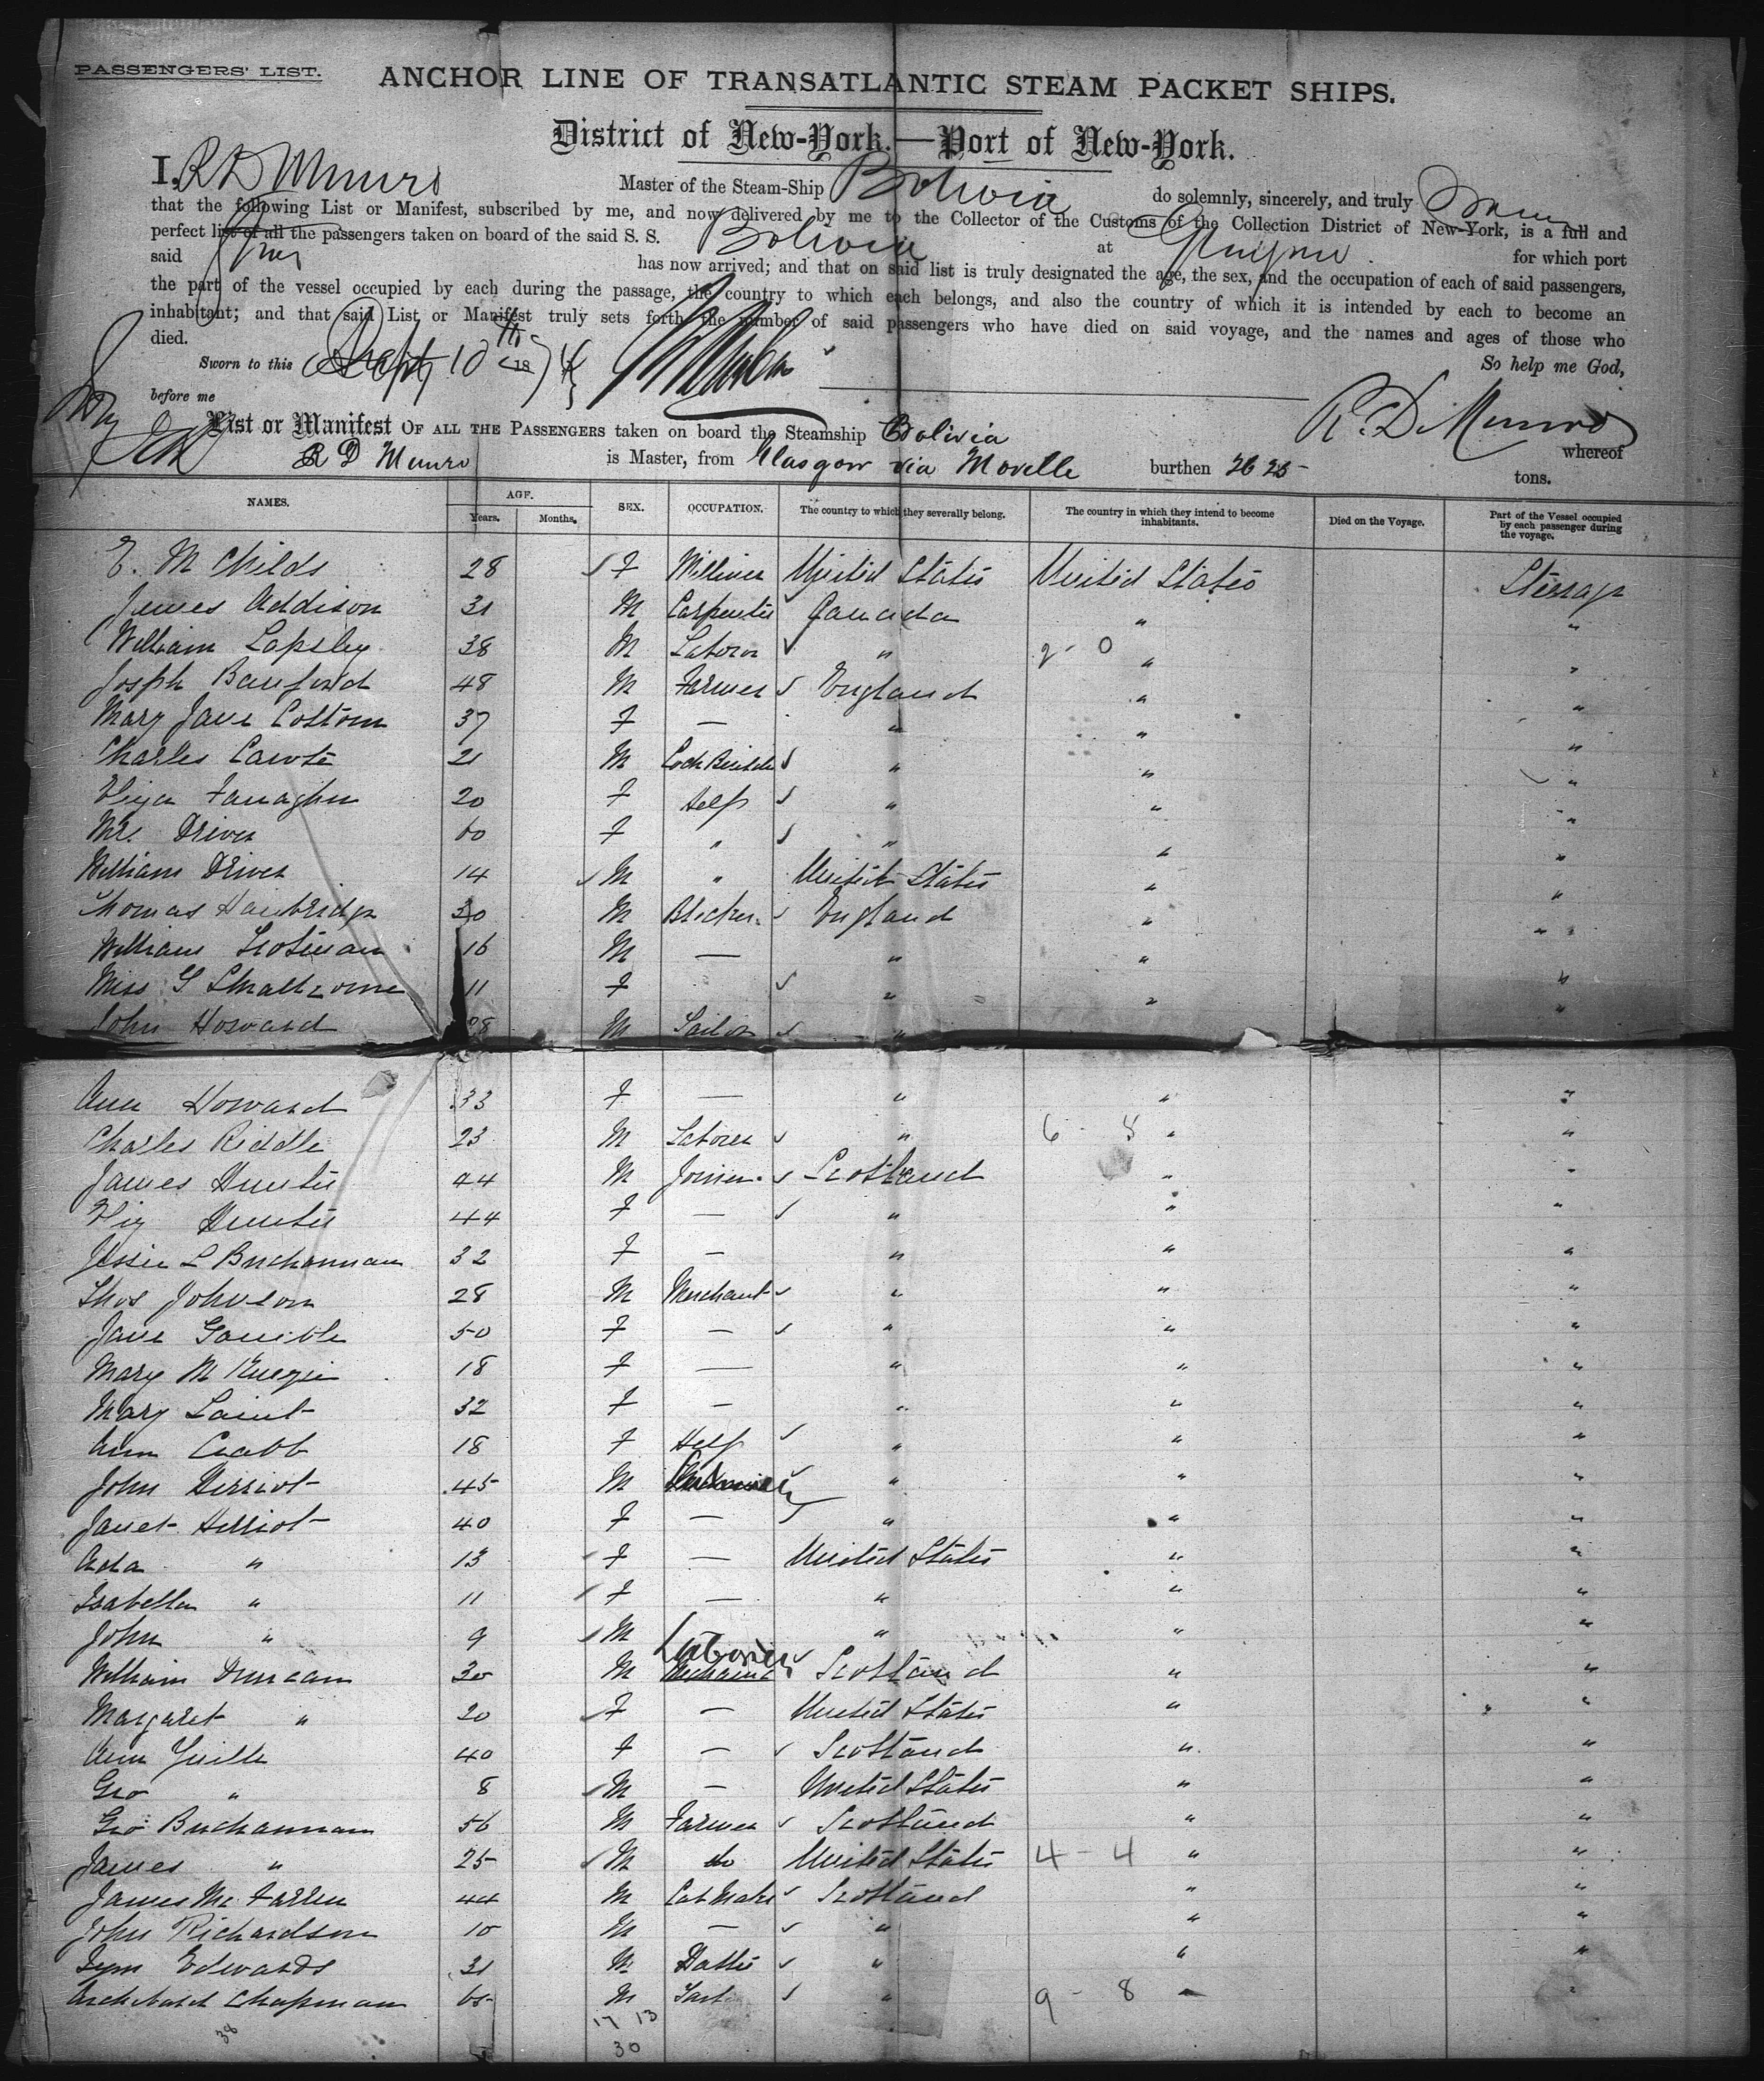 PASSENGERS' LIST.
ANCHOR LINE OF TRANSATLANTIC STEAM PACKET SHIPS.
District of New-York.—Port of New-York.
I, R D Munro Master of the Steam-Ship Bolivia do solemnly, sincerely, and truly
that the following List or Manifest, subscribed by me, and now delivered by me to the Collector of the Customs of the Collection District of New-York, is a full and
perfect list of all the passengers taken on board of the said S. S. Bolivia at Glasgow for which port
said has now arrived; and that on said list is truly designated the age, the sex, and the occupation of each of said passengers,
the part of the vessel occupied by each during the passage, the country to which each belongs, and also the country of which it is intended by each to become an
inhabitant; and that said List or Manifest truly sets forth the number of said passengers who have died on said voyage, and the names and ages of those who
died.
So help me God,
Sworn to this Sept 10th 1874
before me
R. D. Munro
List or Manifest OF ALL THE PASSENGERS taken on board the Steamship Bolivia whereof
R D Munro is Master, from Glasgow via Moville burthen 2625 tons.
NAMES. AGE. Years. Months. SEX. OCCUPATION. The country to which they severally belong. The country in which they intend to become inhabitants. Died on the Voyage. Part of the Vessel occupied by each passenger during the voyage.
E. M Childs 28 F Milliner United States United States Steerage
James Addison 31 M Carpenter Canada " "
William Lapsley 38 M Laborer " 2 - 0 " "
Joseph Banford 48 M Farmer England " "
Mary Jane Cottom 37 F — " " "
Charles Cawte 21 M " " "
Eliza 20 F Help " " "
Mrs. Driver 60 F " " " "
William Driver 14 M " United States " "
Thomas Hanbridge 30 M England " "
William Scotman 16 M — " " "
Miss G 11 F " " "
John Howard 28 M Sailor " "
Ann Howard 33 F — " " "
Charles Riddle 23 M Laborer " 6 - 5 " "
James Hunter 44 M Joiner Scotland " "
Eliz Hunter 44 F — " " "
Jessie L Buchannan 32 F — " " "
Thos Johnson 28 M Merchant " " "
Jane Gamble 50 F — " " "
Mary M Kenzie 18 F — " " "
Mary Laint 32 F — " " "
Ann Crabb 18 F Help " " "
John Herriot 45 M " " "
Janet Herriot 40 F — " " "
Ada " 13 F — United States " "
Isabella " 11 F — " " "
John " 9 M " " "
William Duncan 30 M Laborer Scotland " "
Margaret " 20 F — United States " "
Ann 40 F — Scotland " "
Geo " 8 M — United States " "
Geo Buchannan 56 M Farmer Scotland " "
James " 25 M do United States 4 - 4 " "
James Mc Farren 44 M Cab Maker Scotland " "
John Richardson 10 M — " " "
Edwards 31 M Hatter " " "
Archibald Chapman 65 M " 9 - 8 " "
38
17 13
30